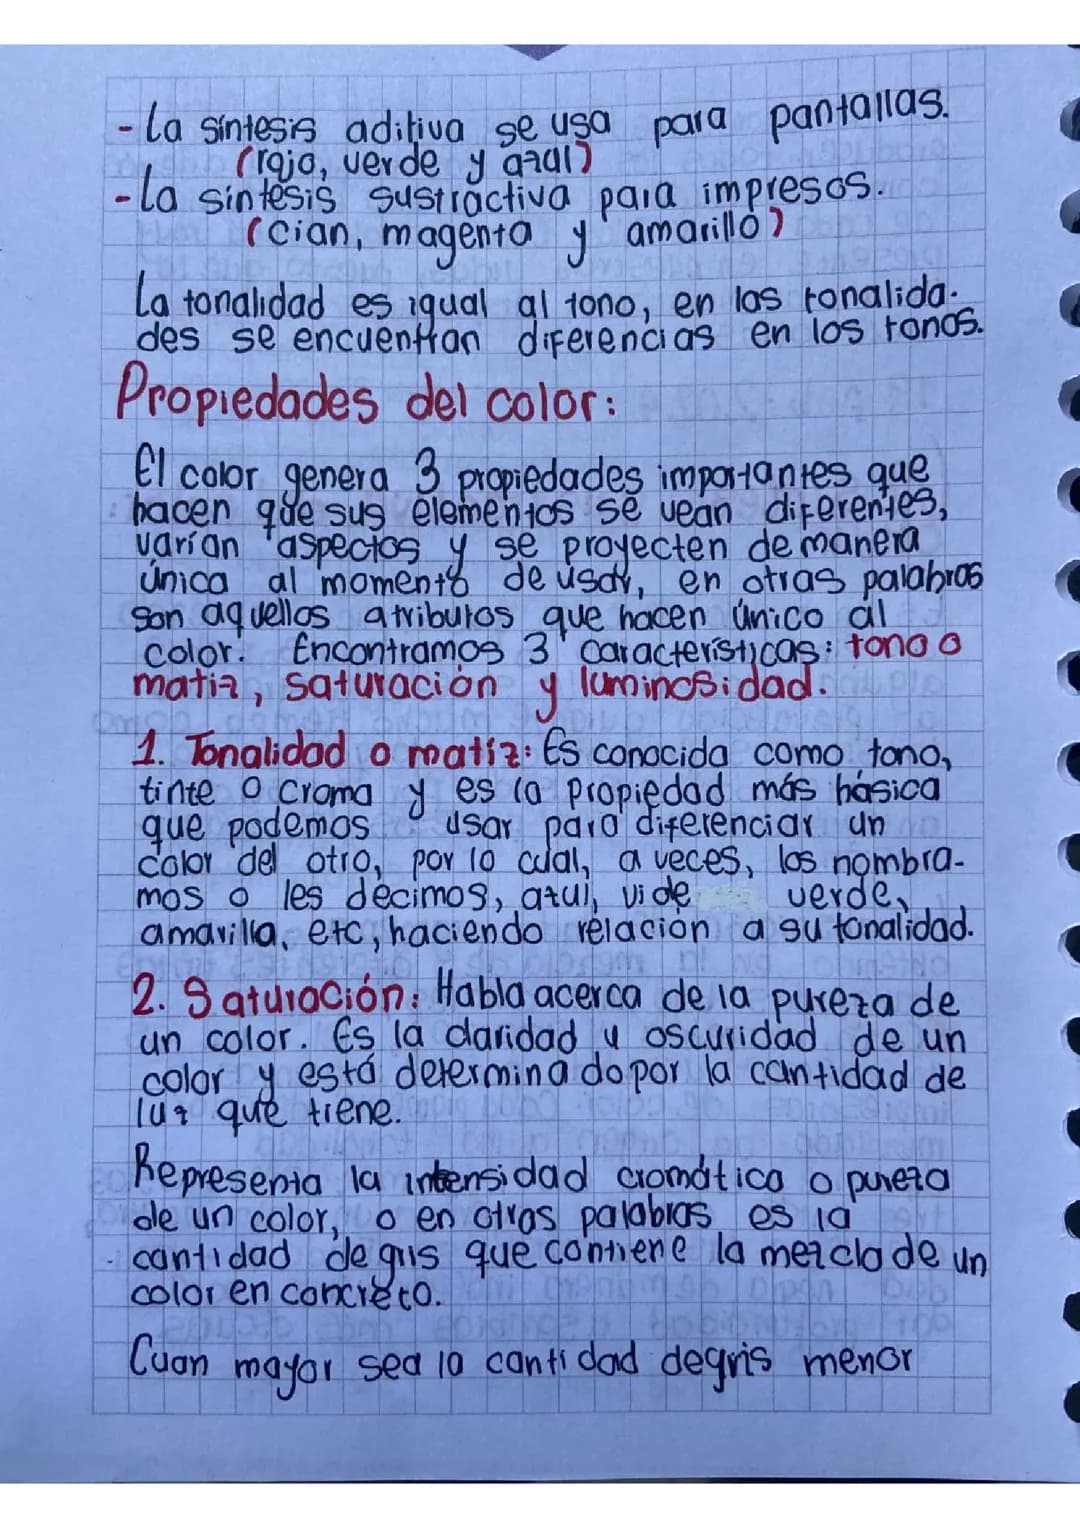 - La síntesis aditiva se usa para pantallas.
(rojo, verde y azul)
- La síntesis sustractiva para impresos.
(cian, magenta y amarillo)
La tonalidad es igual al tono, en las tonalida-
des se encuentran diferencias en los tonos.
Propiedades del color:
El color genera 3 propiedades importantes que
hacen que sus elementos se vean diferentes,
varían aspectos y se proyecten de manera
única al momento de usar, en otras palabras
son aquellos atributos que hacen único al
color. Encontramos 3 características: tono o
matiz, saturación y luminosidad.
1. Tonalidad o matíz: Es conocida como tono,
tinte o croma y es la propiedad más básica
que podemos usar para diferenciar un
color del otro, por lo cual, a veces, los nombra-
mos o les decimos, azul, verde,
amarilla, etc, haciendo relación a su tonalidad.
2. Saturación: Habla acerca de la pureza de
un color. Es la claridad u oscuridad de un
color y está determinado por la cantidad de
luz que tiene.
Representa la intensidad cromática o pureza
de un color, o en otras palabras es la
cantidad de gris que contiene la mezcla de un
color en concreto.
Cuan mayor sea la cantidad de gris menor